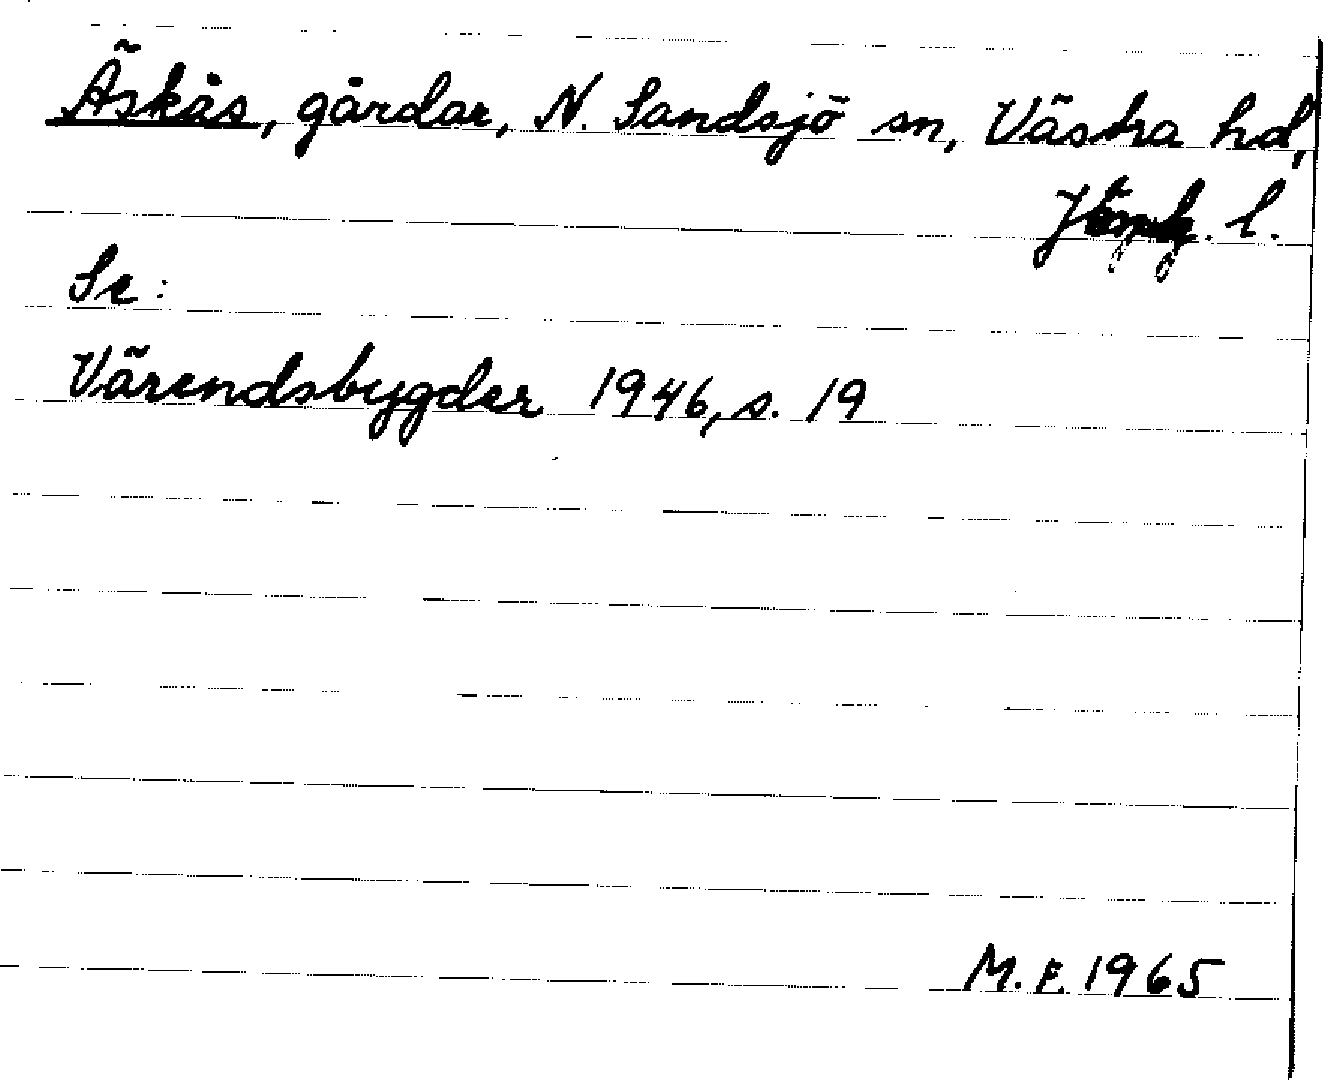 Äskås, gårdar, N. Sandsjö sn, Västra hd,
Jönk. l.
Se:
Värendsbygder 1946, s. 19
M.F. 1965